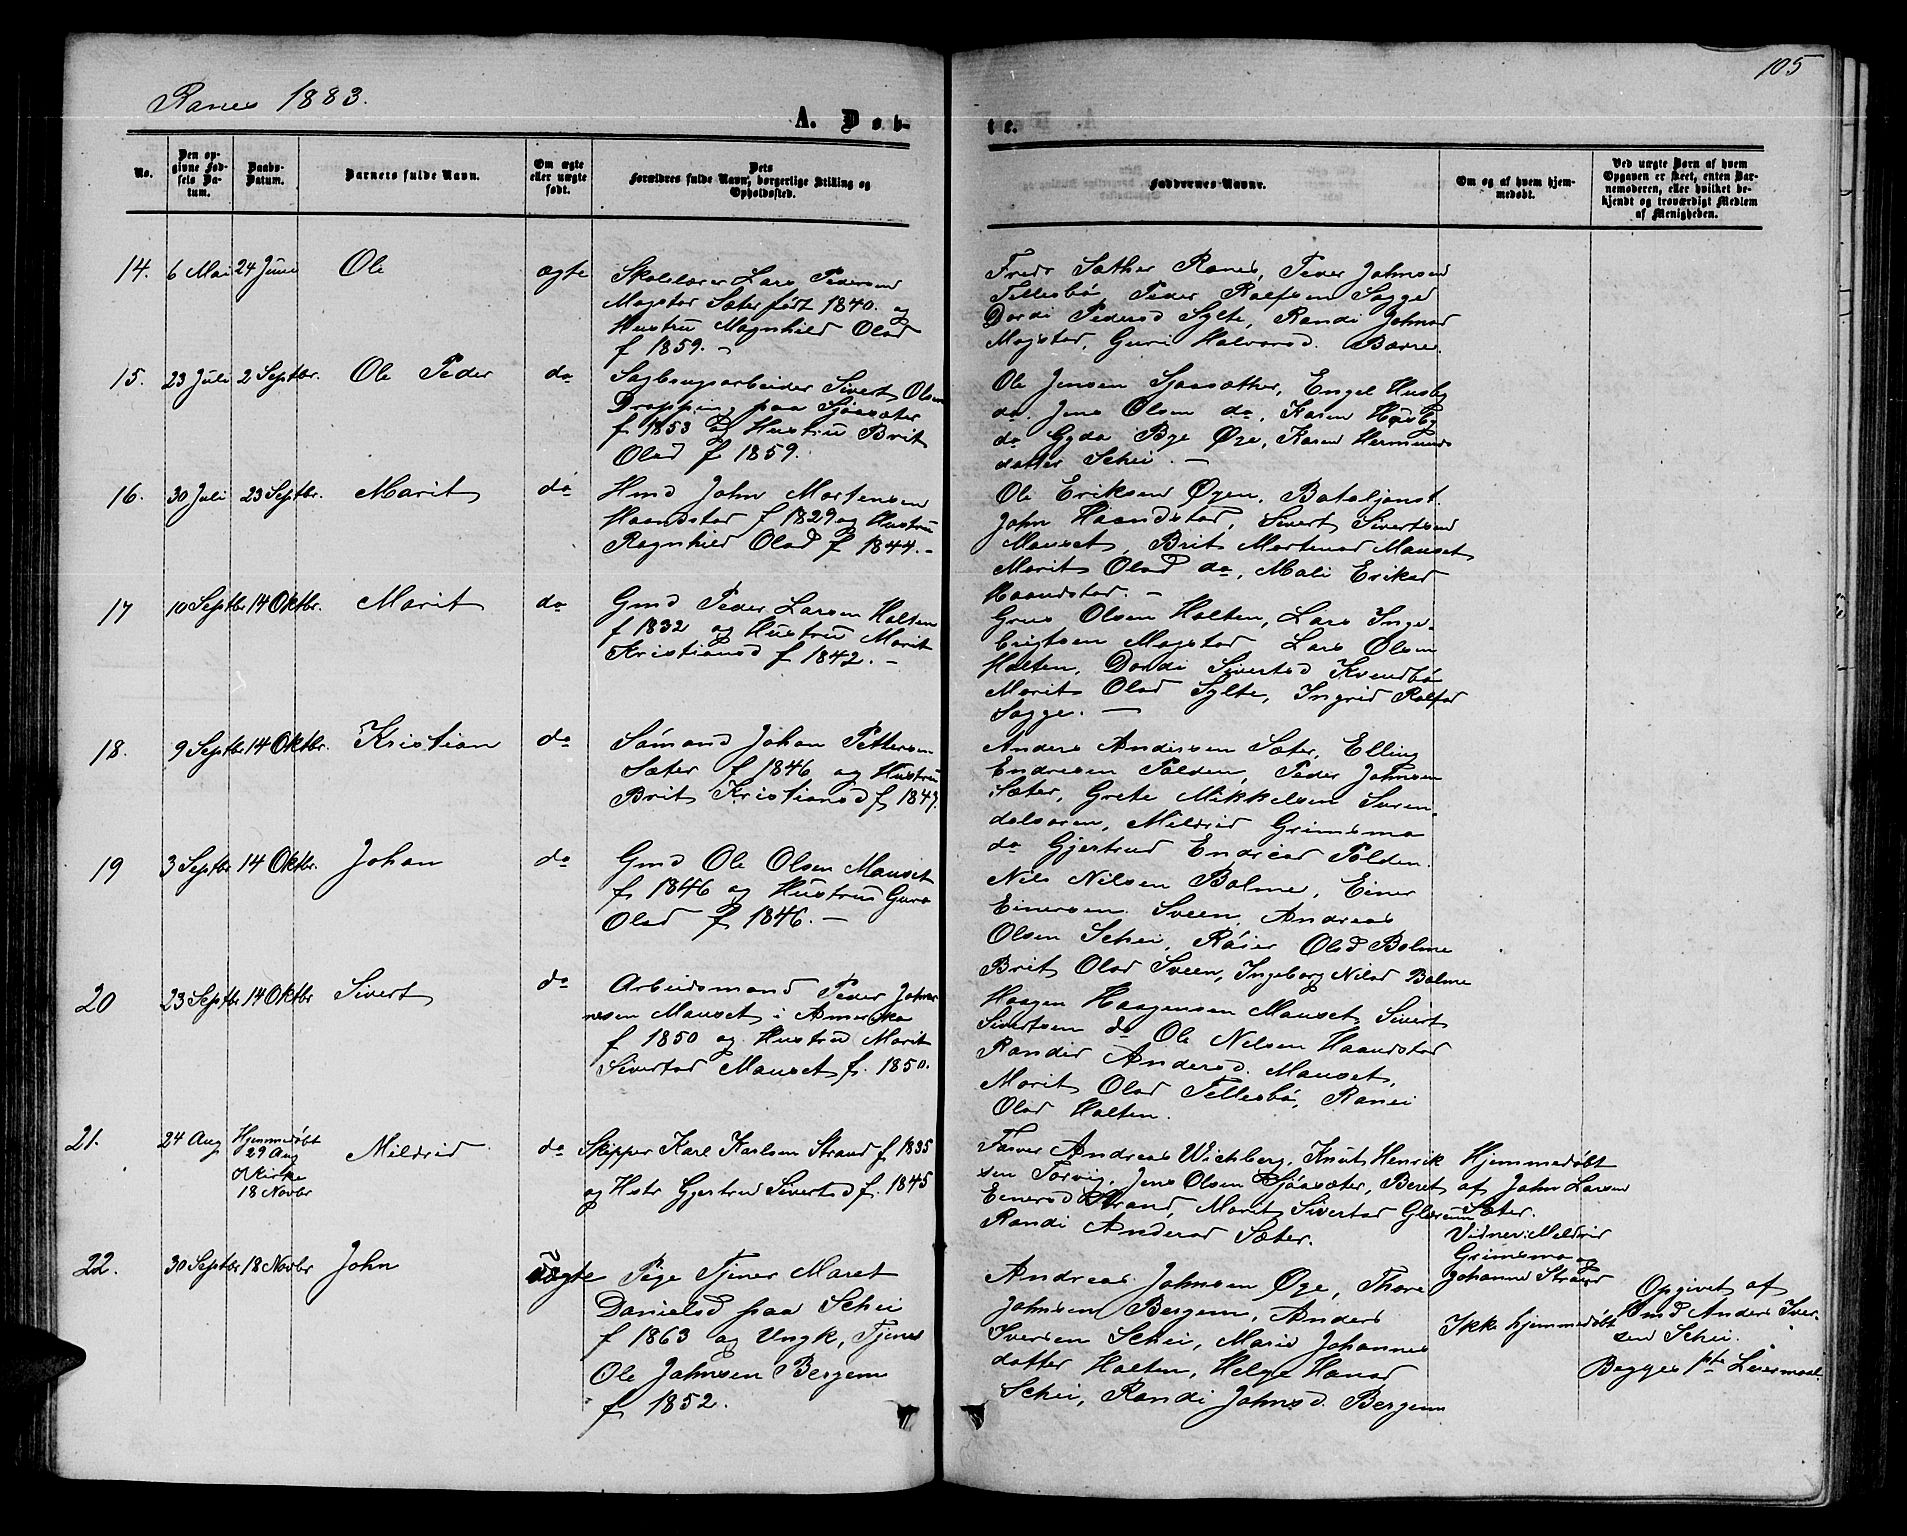 Ranes 1883.
105
A. Døb-
te.
No.
Den op-
givne Fød-
sels Da-
tum.
Daabs-
Datum.
Barnets fulde Navn.
Om ægte
eller uægte
født.
Dets
Forældres fulde Navn, borgerlige Stilling og
Opholdssted.
Faddernes Navne.
Om og af hvem hjem-
medøbt.
Ved uægte Børn af hvem
Opgaven er skeet, enten Bar-
nemoderen, eller hvilket be-
kjendt og troværdigt Medlem
af Menigheden.
14. 6 Mai 24 Juni Ole ægte
Skolelærer Lars Pedersen
Mogstad Sæter født 1840. og
Hustru Magnhild Olsd
f 1859. -
Fredr Sæther Ranes, Peder Johnsen
Tellesbø, Peder Rolfsen Sogge
Dordi Pedersd Sylte, Randi Johnsd
Mogstad, Guri Halvorsd. Bævre.
15. 23 Juli 2 Septbr. Ole Peder do
Sagbrugsarbeider Sivert Olsen
Dropping paa Sjøasæter
f 1853 og Hustru Brit
Olsd f 1859.
Ole Jensen Sjøasæther, Engel Husby
do, Jens Olsen do, Karen Husby
do Gyda Bye Øye, Karen Hermunds
datter Schei. -
16. 30 Juli 23 Septbr. Marit do
Hmd John Mortensen
Haandstad f 1829 og Hustru
Ragnhild Olsd f 1844. -
Ole Eriksen Øyen, Bataljonst.
John Haandstad, Sivert Sivertsen
Mauset, Brit Mortensd Mauset
Marit Olsd do, Mali Eriksd
Haandstad. -
17 10 Septbr 14 Oktbr. Marit do
Gmd Peder Larsen Halten
f 1832 og Hustru Marit
Kristiansd f 1842. -
Grus Olsen Halten, Lars Inge-
brigtsen Mogstad Lars Olsen
Halten, Dordi Sivertsd Kvendbø
Marit Olsd Sylte, Ingrid Rolfsd
Sogge. -
18. 9 Septbr 14 Oktbr. Kristian do
Sømand Johan Pettersen
Sæter f 1846 og Hustru
Brit Kristiansd f 1847.
Anders Andersen Sæter, Elling
Endresen Polden, Peder Johnsen
Sæter, Grete Mikkelsen Suren-
dalsøren, Mildrid Grimsmo
do Gjertrud Endresd Polden.
19 3 Septbr 14 Oktbr. Johan do
Gmd Ole Olsen Mauset
f 1846 og Hustru Guro
Olsd f 1846. -
Nils Nilsen Bolme, Einer
Einersen Sveen, Andreas
Olsen Schei, Røier Olsd Bolme
Brit Olsd Sveen, Ingeborg Nilsd Bolme
20 23 Septbr 14 Oktbr Sivert do
Arbeidsmand Peder Johan-
nesen Mauset i Amerika
f 1850 og Hustru Marit
Sivertsd Mauset f. 1850.
Haagen Haagensen Mauset, Sivert
Sivertsen do Ole Nilsen Haandstad
Randid Andersd. Mauset,
Marit Olsd Tellesbø, Ranei
Olsd Halten.
21. 24 Aug Hjemmedøbt
29 Aug
I Kirke
18 Novbr
Mildrid do
Skipper Karl Karlsen Strand f 1835
og Hstr Gjertrud Sivertsd f. 1845
Farver Andreas Wichberg, Knut Henrik
sen Torvig, Jens Olsen Sjøasæter, Beret
Einersd Strand, Marit Sivertsd Glærum
Randi Andersd Sæter.
Hjemmedøbt
af John Larsen
Sæter.
Vidner: Mildrid
Grimsmo og
Johanne Strand
22. 30 Septbr 18 Novbr John Uægte
Pige Tjener Maret
Danielsd paa Schei
f 1863 og Ungk, Tjener
Ole Johnsen Bergem
f 1852.
Andreas Johnsen Øye, Thore
Johnsen Bergem, Anders
Iversen Schei, Marie Johannes
datter Halten, Helge Hansd
Schei, Randi Johnsd. Bergem
Ikke hjemmedøbt
Opgivet af
Hmd Anders Iver-
sen Schei.
Begges 1ste Leiermaal